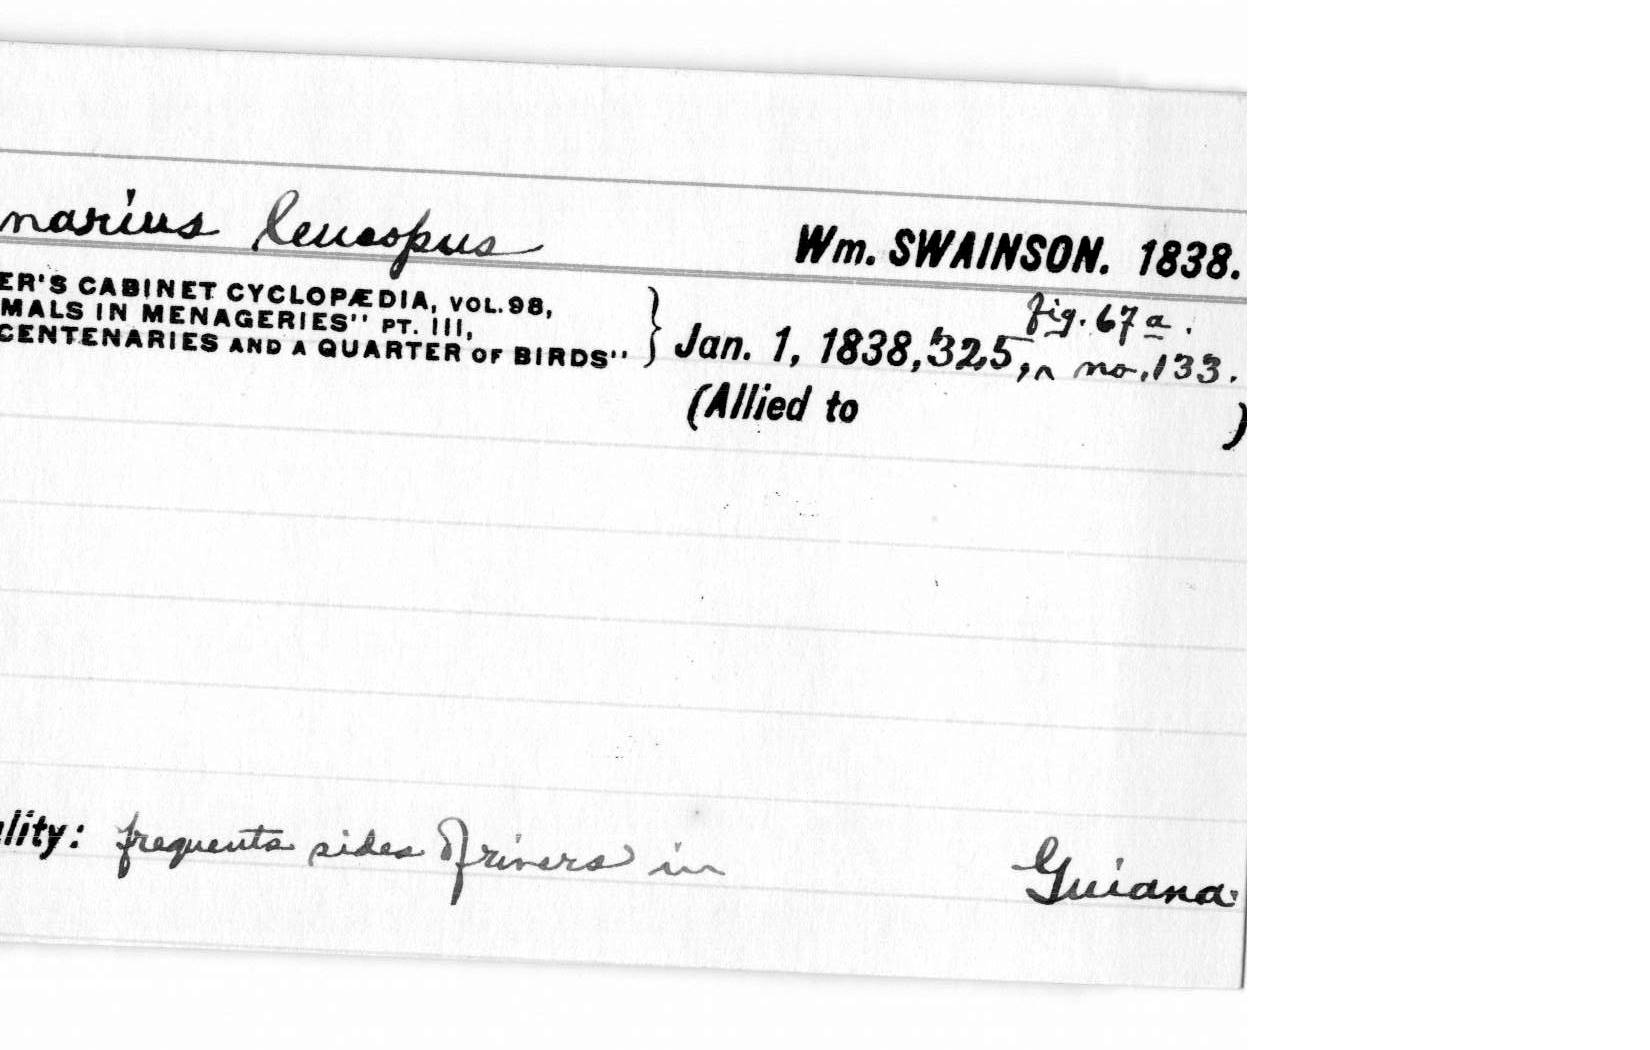 narius leucopus Wm. SWAINSON. 1838.
ER'S CABINET CYCLOPÆDIA, VOL.98,
MALS IN MENAGERIES" PT. III,
CENTENARIES AND A QUARTER OF BIRDS"
fig. 67 a.
} Jan. 1, 1838, 325, ^ no. 133.
(Allied to )
lity: frequents sides of rivers in Guiana.